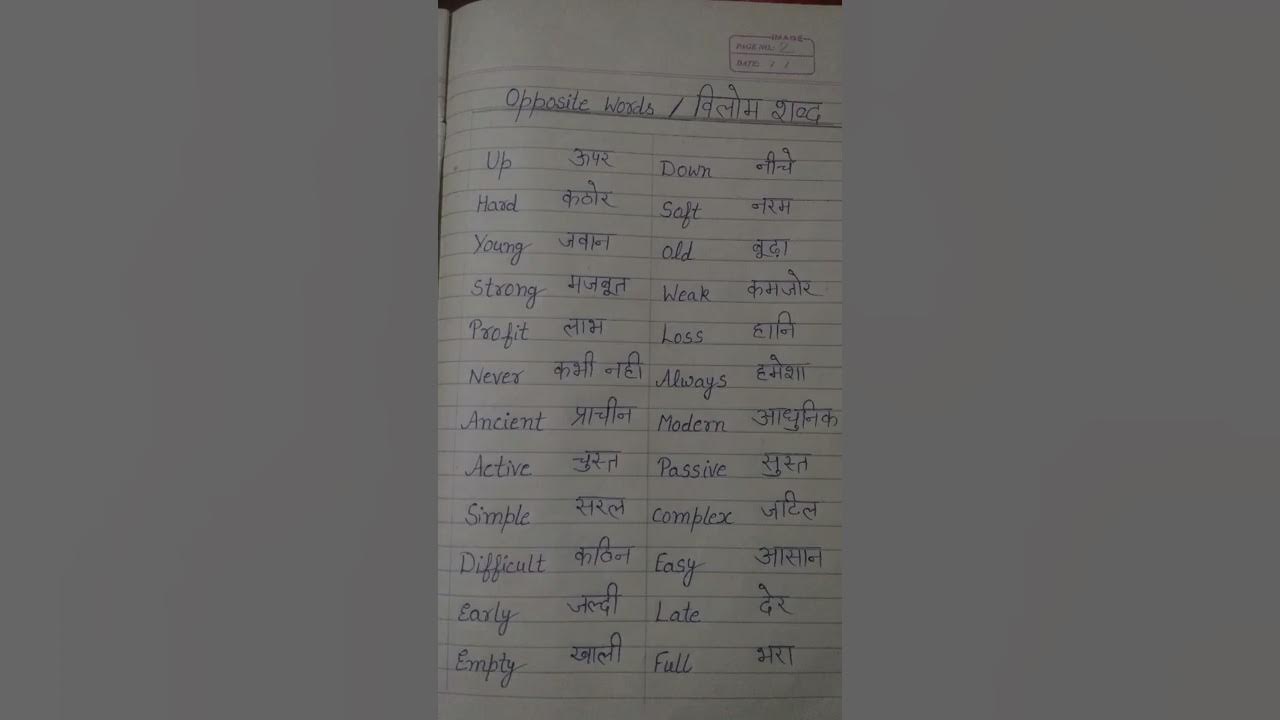 IMAGE
PAGE NO.: 2
DATE: / /
Opposite Words / विलोम शब्द
Up ऊपर Down नीचे
Hard कठोर Soft नरम
Young जवान Old बूढ़ा
Strong मजबूत Weak कमजोर
Profit लाभ Loss हानि
Never कभी नही Always हमेशा
Ancient प्राचीन Modern आधुनिक
Active चुस्त Passive सुस्त
Simple सरल Complex जटिल
Difficult कठिन Easy आसान
Early जल्दी Late देर
Empty खाली Full भरा